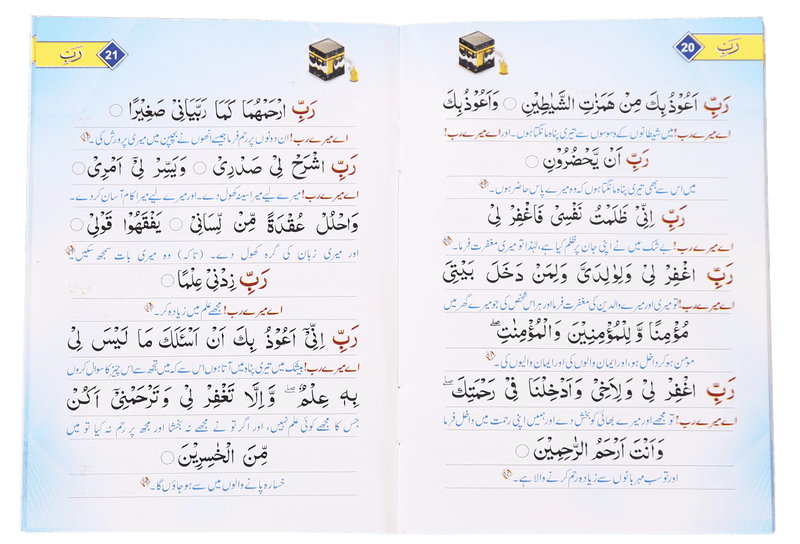 رَبِّ 20
رَبِّ اَعُوْذُ بِكَ مِنْ هَمَزٰتِ الشَّيٰطِيْنِ ○ وَاَعُوْذُ بِكَ
اے میرے رب! میں شیطانوں کے وسوسوں سے تیری پناہ مانگتا ہوں۔ اور اے میرے رب!
رَبِّ اَنْ يَّحْضُرُوْنِ ○
میں اس سے بھی تیری پناہ مانگتا ہوں کہ وہ میرے پاس حاضر ہوں۔
رَبِّ اِنِّىْ ظَلَمْتُ نَفْسِىْ فَاغْفِرْ لِىْ
اے میرے رب! بے شک میں نے اپنی جان پر ظلم کیا ہے، لہٰذا تو میری مغفرت فرما۔
رَبِّ اغْفِرْ لِىْ وَلِوَالِدَىَّ وَلِمَنْ دَخَلَ بَيْتِىَ
اے میرے رب! تو میری اور میرے والدین کی مغفرت فرما اور ہر اس شخص کی جو میرے گھر میں
مُؤْمِنًا وَّ لِلْمُؤْمِنِيْنَ وَالْمُؤْمِنٰتِ ۖ
مومن ہو کر داخل ہو، اور ایمان والوں کی اور ایمان والیوں کی۔
رَبِّ اغْفِرْ لِىْ وَلِاَخِىْ وَاَدْخِلْنَا فِىْ رَحْمَتِكَ ۖ
اے میرے رب! تو مجھے اور میرے بھائی کو بخش دے اور ہمیں اپنی رحمت میں داخل فرما
وَاَنْتَ اَرْحَمُ الرّٰحِمِيْنَ ○
اور تو سب مہربانوں سے زیادہ رحم کرنے والا ہے۔
21 رَبِّ
رَبِّ ارْحَمْهُمَا كَمَا رَبَّيَانِىْ صَغِيْرًا ○
اے میرے رب! ان دونوں پر رحم فرما جیسے انھوں نے بچپن میں میری پرورش کی۔
رَبِّ اشْرَحْ لِىْ صَدْرِىْ ○ وَيَسِّرْ لِىْٓ اَمْرِىْ ○
اے میرے رب! میرے لیے میرا سینہ کھول دے۔ اور میرے لیے میرا کام آسان کر دے۔
وَاحْلُلْ عُقْدَةً مِّنْ لِّسَانِىْ ○ يَفْقَهُوْا قَوْلِىْ ○
اور میری زبان کی گرہ کھول دے۔ (تاکہ) وہ میری بات سمجھ سکیں۔
رَبِّ زِدْنِىْ عِلْمًا ○
اے میرے رب! مجھے علم میں زیادہ کر۔
رَبِّ اِنِّىْٓ اَعُوْذُ بِكَ اَنْ اَسْئَلَكَ مَا لَيْسَ لِىْ
اے میرے رب! بیشک میں تیری پناہ میں آتا ہوں اس سے کہ میں تجھ سے اس چیز کا سوال کروں
بِهٖ عِلْمٌ ۖ وَاِلَّا تَغْفِرْ لِىْ وَتَرْحَمْنِىْٓ اَكُنْ
جس کا مجھے کوئی علم نہیں، اور اگر تو نے مجھے نہ بخشا اور مجھ پر رحم نہ کیا تو میں
مِّنَ الْخٰسِرِيْنَ ○
خسارہ پانے والوں میں سے ہو جاؤں گا۔